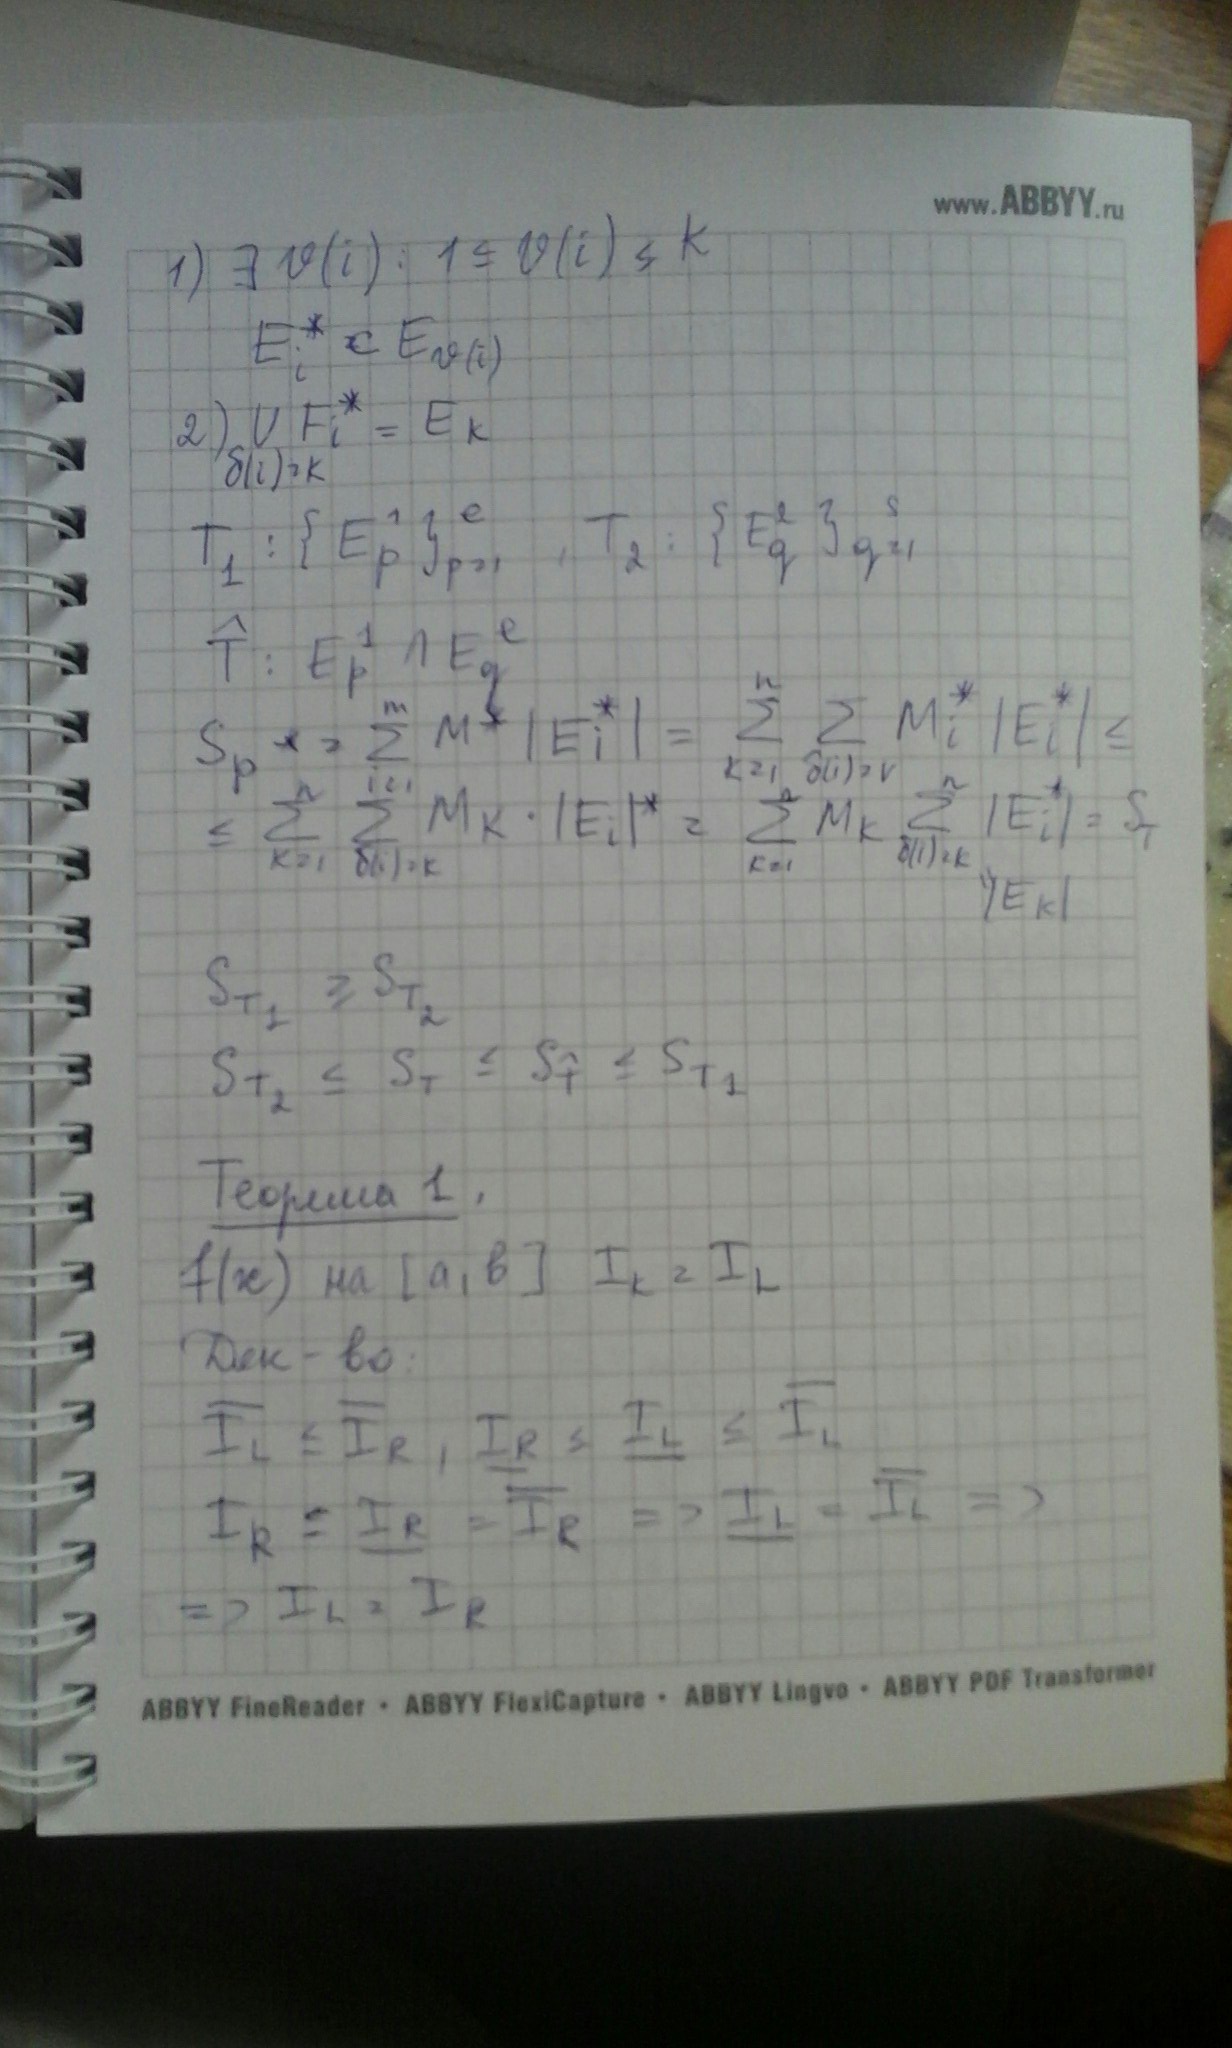 www.ABBYY.ru
1) ∃ ϑ(i) : 1 ≤ ϑ(i) ≤ K
E_i^* ⊂ E_ϑ(i)
2) ∪_{δ(i)=K} E_i^* = E_K
T_1 : {E_p^1}_{p=1}^e , T_2 : {E_q^2}_{q=1}^s
T̂ : E_p^1 ∩ E_q^e
S_p* = Σ_{i=1}^m M^* |E_i^*| = Σ_{k=1}^n Σ_{δ(i)=k} M_i^* |E_i^*| ≤
≤ Σ_{k=1}^n Σ_{δ(i)=k}^n M_K · |E_i|^* = Σ_{k=1}^n M_K Σ_{δ(i)=k}^n |E_i^*| = S_T
|E_K|
S_{T_1} ≥ S_{T_2}
S_{T_2} ≤ S_T ≤ S_T̂ ≤ S_{T_1}
Теорема 1.
f(x) на [a, b] I_R = I_L
Док-во:
I̅_L ≤ I̅_R , I̲_R ≤ I̲_L ≤ I̅_L
I_R = I̲_R = I̅_R => I̲_L = I̅_L =>
=> I_L = I_R
ABBYY FineReader • ABBYY FlexiCapture • ABBYY Lingvo • ABBYY PDF Transformer